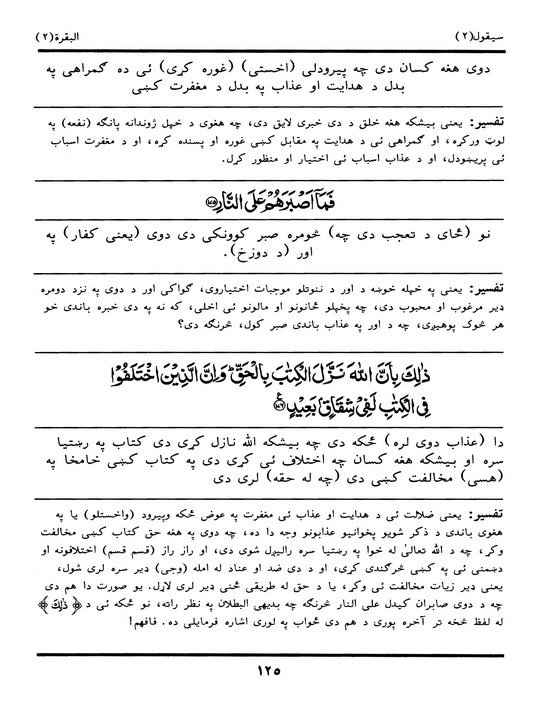 سیقول(۲)
البقرة(۲)
دوی هغه کسان دی چه پیرودلی (اخستی) (غوره کړی) ئی ده ګمراهی په
بدل د هدایت او عذاب په بدل د مغفرت کښی
تفسیر: یعنی بیشکه هغه خلق د دی خبری لایق دی، چه هغوی د خپل ژوندانه پانګه (نفعه) په
لوټ ورکړه، او ګمراهی ئی د هدایت په مقابل کښی غوره او پسنده کړه، او د مغفرت اسباب
ئی پریښودل، او د عذاب اسباب ئی اختیار او منظور کړل.
فَمَآ اَصْبَرَهُمْ عَلَى النَّارِ ﴿۱۷۵﴾
نو (ځای د تعجب دی چه) څومره صبر کوونکی دی دوی (یعنی کفار) په
اور (د دوزخ).
تفسیر: یعنی په خپله خوښه د اور د ننوتلو موجبات اختیاروی، ګواکی اور د دوی په نزد دومره
ډیر مرغوب او محبوب دی، چه پخپلو ځانونو او مالونو ئی اخلی، که نه په دی خبره باندی خو
هر څوک پوهیږی، چه د اور په عذاب باندی صبر کول، څرنګه دی؟
ذٰلِكَ بِاَنَّ اللّٰهَ نَزَّلَ الْكِتٰبَ بِالْحَقِّ ؕ وَاِنَّ الَّذِيْنَ اخْتَلَفُوْا
فِى الْكِتٰبِ لَفِىْ شِقَاقٍۢ بَعِيْدٍ ﴿۱۷۶﴾
دا (عذاب دوی لره) ځکه دی چه بیشکه الله نازل کړی دی کتاب په رښتیا
سره او بیشکه هغه کسان چه اختلاف ئی کړی دی په کتاب کښی خامخا په
(هسی) مخالفت کښی دی (چه له حقه) لری دی
تفسیر: یعنی ضلالت ئی د هدایت او عذاب ئی مغفرت په عوض ځکه وپیرود (واخستلو) یا په
هغوی باندی د ذکر شویو پخوانیو عذابونو وجه دا ده، چه دوی په هغه حق کتاب کښی مخالفت
وکړ، چه د الله تعالیٰ له خوا په رښتیا سره رالیږل شوی دی، او راز راز (قسم قسم) اختلافونه او
دښمنی ئی په کښی څرګندی کړی، او د دی ضد او عناد له امله (وجی) ډیر سره لری شول،
یعنی ډیر زیات مخالفت ئی وکړ، یا د حق له طریقی ځنی ډیر لری لاړل. یو صورت دا هم دی
چه د دوی صابران کیدل علی النار څرنګه چه بدیهی البطلان په نظر راته، نو ځکه ئی د ﴿ذٰلِكَ﴾
له لفظ څخه تر آخره پوری د هم دی ځواب په لوری اشاره فرمایلی ده. فافهم!
۱۲۵